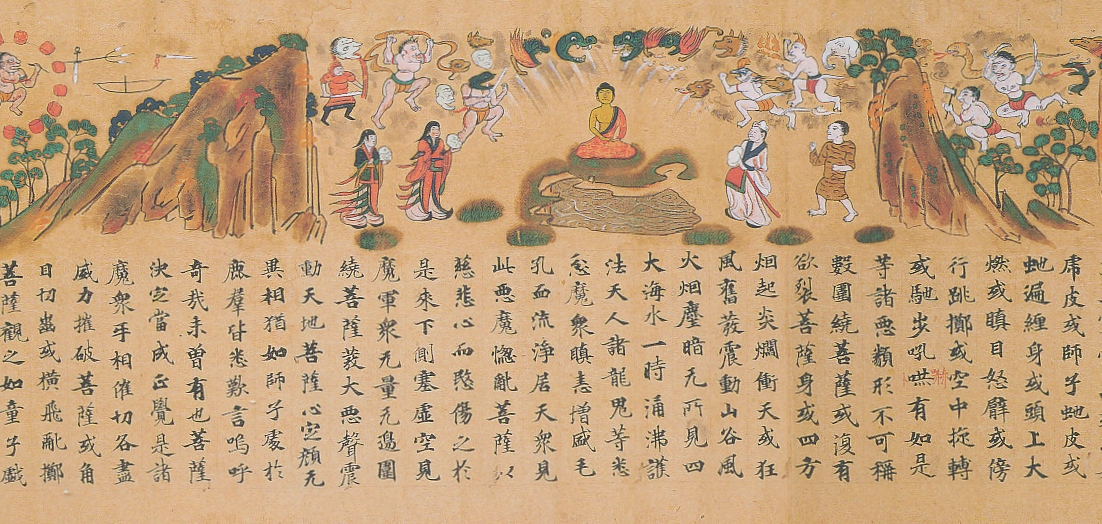 虎皮或師子虵皮或
虵遍纏身或頭上大
燃或瞋目怒臂或傍
行跳擲或空中旋轉
或馳步吼嚇有如是
等諸惡類形不可稱
數圍繞菩薩或復有
欲裂菩薩身或四方
烟起炎爛衝天或狂
風奮發震動山谷風
火烟塵暗无所見四
大海水一時涌沸護
法天人諸龍鬼等悉
忿魔衆瞋恚增盛毛
孔血流淨居天衆見
此惡魔惚亂菩薩以
慈悲心而愍傷之於
是來下側塞虛空見
魔軍衆无量无邊圍
繞菩薩發大惡聲震
動天地菩薩心定顏无
異相猶如師子處於
鹿羣皆悉歎言嗚呼
奇哉未曽有也菩薩
決定當成正覺是諸
魔衆手相催切各盡
威力摧破菩薩或角
目切齒或橫飛亂擲
菩薩觀之如童子戲